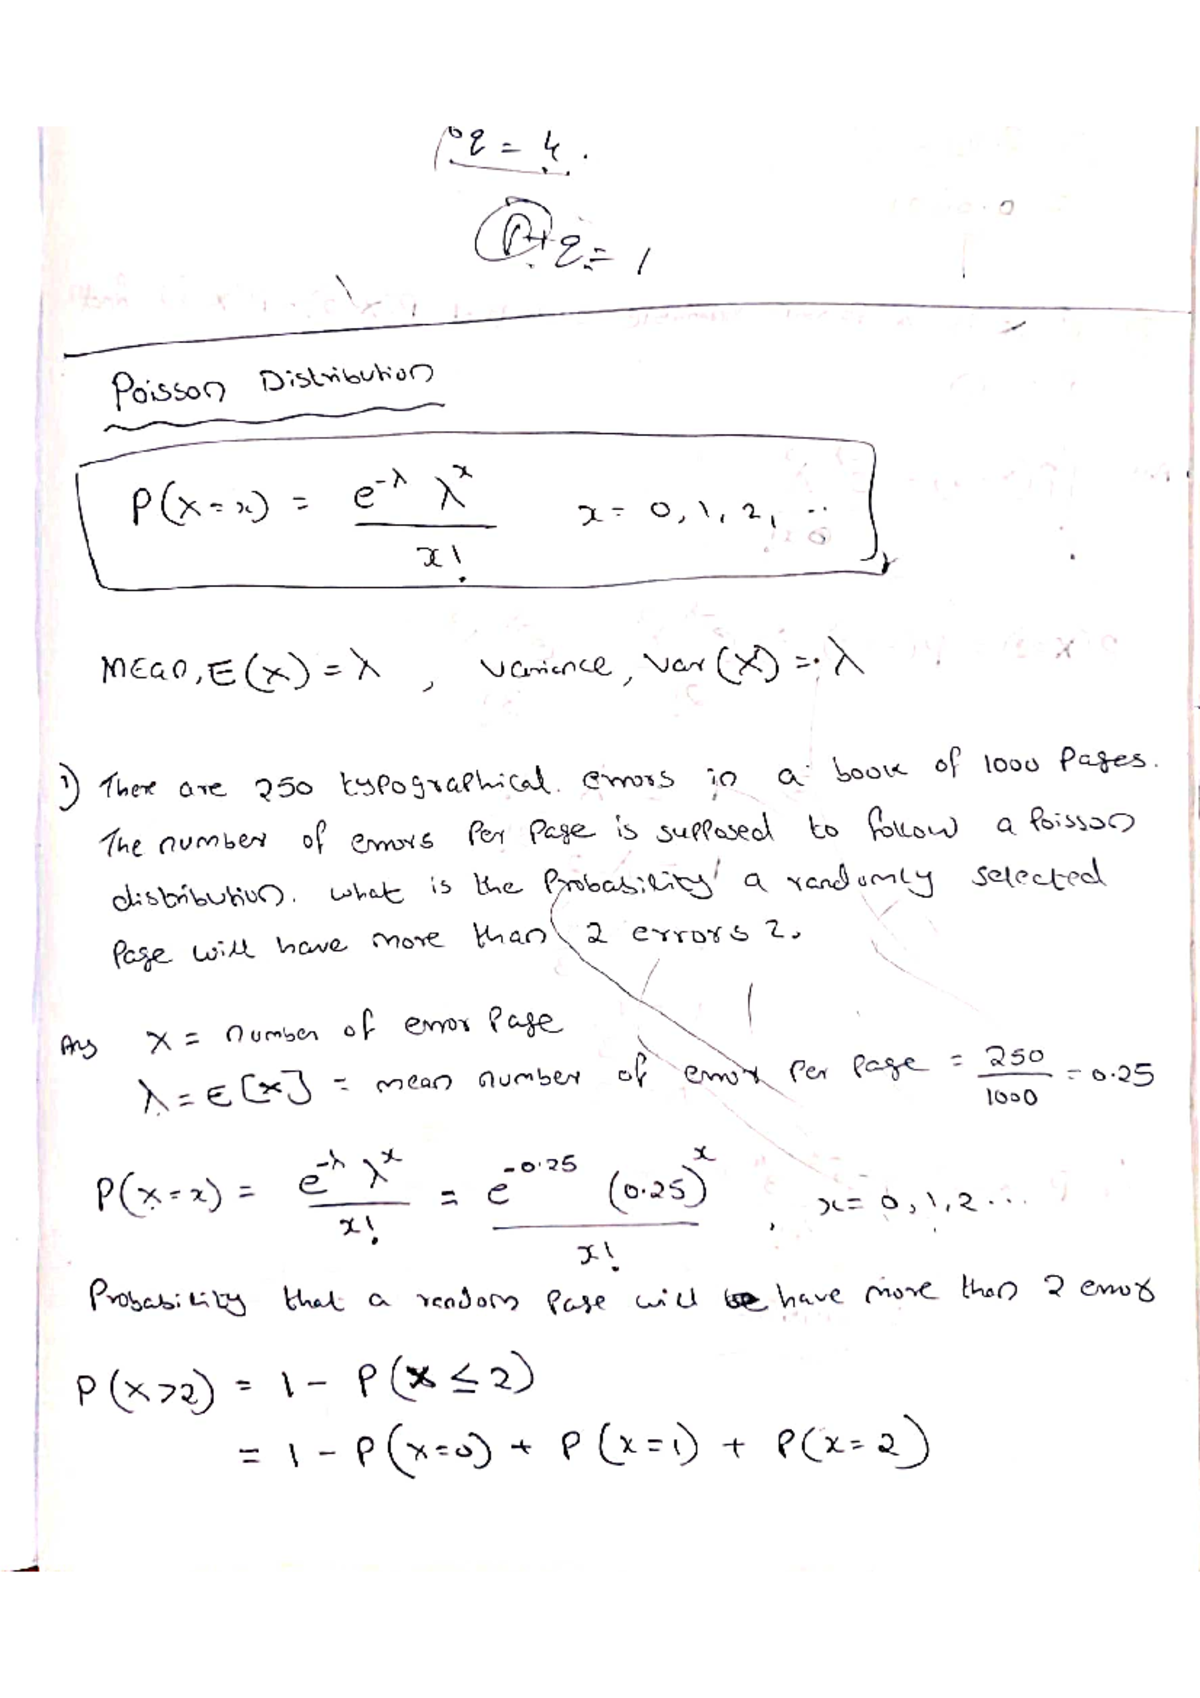 q = 4.
P + q = 1
Poisson Distribution
P(X=x) = e^-λ λ^x / x! x = 0, 1, 2, ..
Mean, E(X) = λ, Variance, Var(X) = λ
1) There are 250 typographical errors in a book of 1000 Pages.
The number of errors Per Page is supposed to follow a Poisson
distribution. what is the Probability a randomly selected
Page will have more than 2 errors?.
Ans X = number of error Page
λ = E[X] = mean number of error Per Page = 250/1000 = 0.25
P(X=x) = e^-λ λ^x / x! = e^-0.25 (0.25)^x / x! , x = 0, 1, 2 ...
Probability that a random Page will have more than 2 error
P(X>2) = 1 - P(X ≤ 2)
= 1 - P(X=0) + P(X=1) + P(X=2)